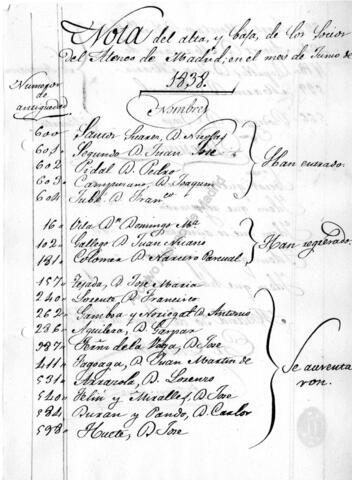 Nota del alta, y baja, de los Socios
del Ateneo de Madrid, en el mes de Junio de
1838.
Numeros de antiguedad
Nombres
600 Santos Suarez, D. Nicolas
601 Segundo D. Juan José
602 Pidal D. Pedro
603 Campuzano, D. Joaquin
604 D. Franco
Han entrado.
16 Vila Dn Domingo Ma.
102 Gallego D. Juan Nicasio
181 Colomer D. Narciso Pascual
Han regresado.
157 Tejada, D. José Maria
240 Lorente, D. Francisco
262 Gamboa y D. Antonio
236 Aguilera, D. Gaspar
387 de la Vega, D. José
411 Fagoaga, D. Juan Martin de
531 Arrazola, D. Lorenzo
540 Feliu y Miralles, D. José
584 Duran y Pando, D. Carlos
598 Huet, D. José
Se ausenta
ron.